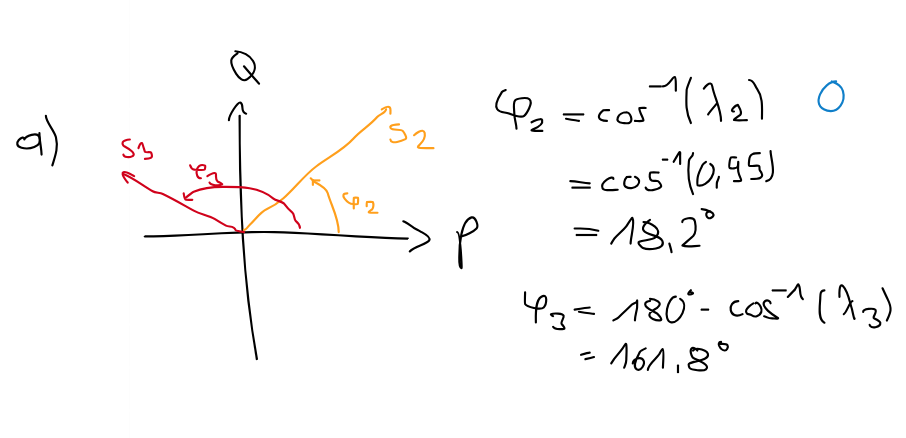 a)
Q
P
S3
φ3
S2
φ2
φ2 = cos⁻¹(λ2) 0
= cos⁻¹(0,95)
= 18,2°
φ3 = 180° - cos⁻¹(λ3)
= 161,8°